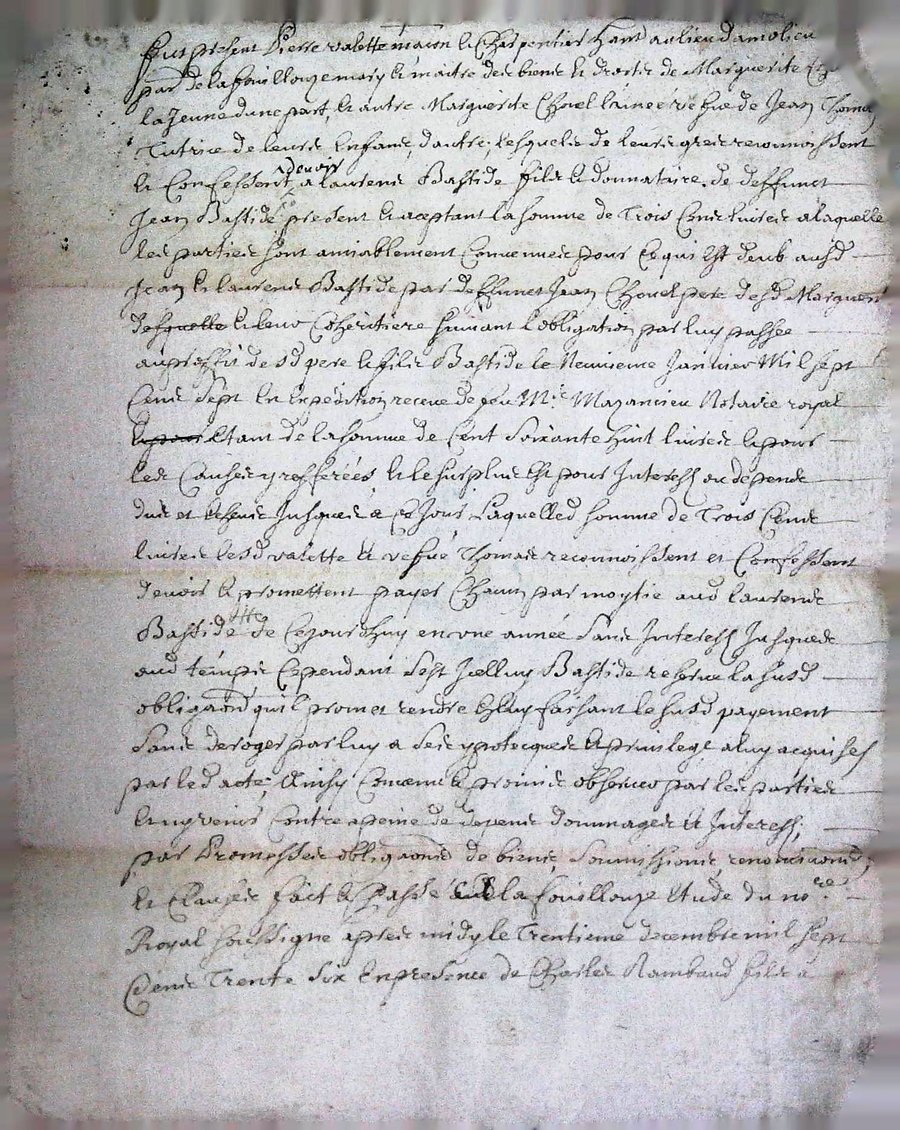 fut present Pierre valette maçon et Charpentier hant au lieu damolieu
parr de la fouillouze mary et maitre des biens et droits de Marguerite
la Jeune dune part, et autre Marguerite Chovel lainée vefue de Jean Thomas
Tutrice de leurs Enfans, dautre; lesquels de leurs grés reconnoissent
et Confessent devoir a laurens Bastide fils et donnataire de deffunct
Jean Bastide present et aceptant la somme de Trois Cens livres a laquelle
les parties sont amiablement Convenues pour Ce qui Est deub ausd
Jean et laurens Bastide par deffunct Jean Chovel pere desd Marguerit
desquelle et leur Coheritiere suivant lobligation par luy passée
au proffit desd pere et fils Bastide le Neuvieme Janvier Mil sept
Cens Sept En Expedition receue de feu Mre Mazancieu Notaire royal
et pour Etant de la somme de Cent Soixante huit livres et pour
les Causes y refferées, et le surplus Est pour Interest ou depens
dus et Echeus Jusques a Ce Jour Laquelled somme de Trois Cens
livres lesd valette et vefue Thomas reconnoissent et Confessent
devoir et promettent payer Chacun par moytie aud laurens
Bastide de Cejourdhuy en une année Sans Interest Jusques
aud temps Cependant sest Jcelluy Bastide reservé la susd
obligaôn quil promet rendre Et luy faisant le susd payement
Sans deroger par luy a Ses ypoteques et privilege a luy acquises
par led acte Ainsy Convenu et promis observer par les parties
et ny venir Contre a peine de depens dommages et Interest,
par Promesses obligaôns de biens, Soumissions, renonciaôns,
et Clauses fait et Passé a la fouillouze Etude du nore
Royal soussigne apres midy le Trentieme decembre mil sept
Cens Trente Six En presence de Charles Rambaud fils a